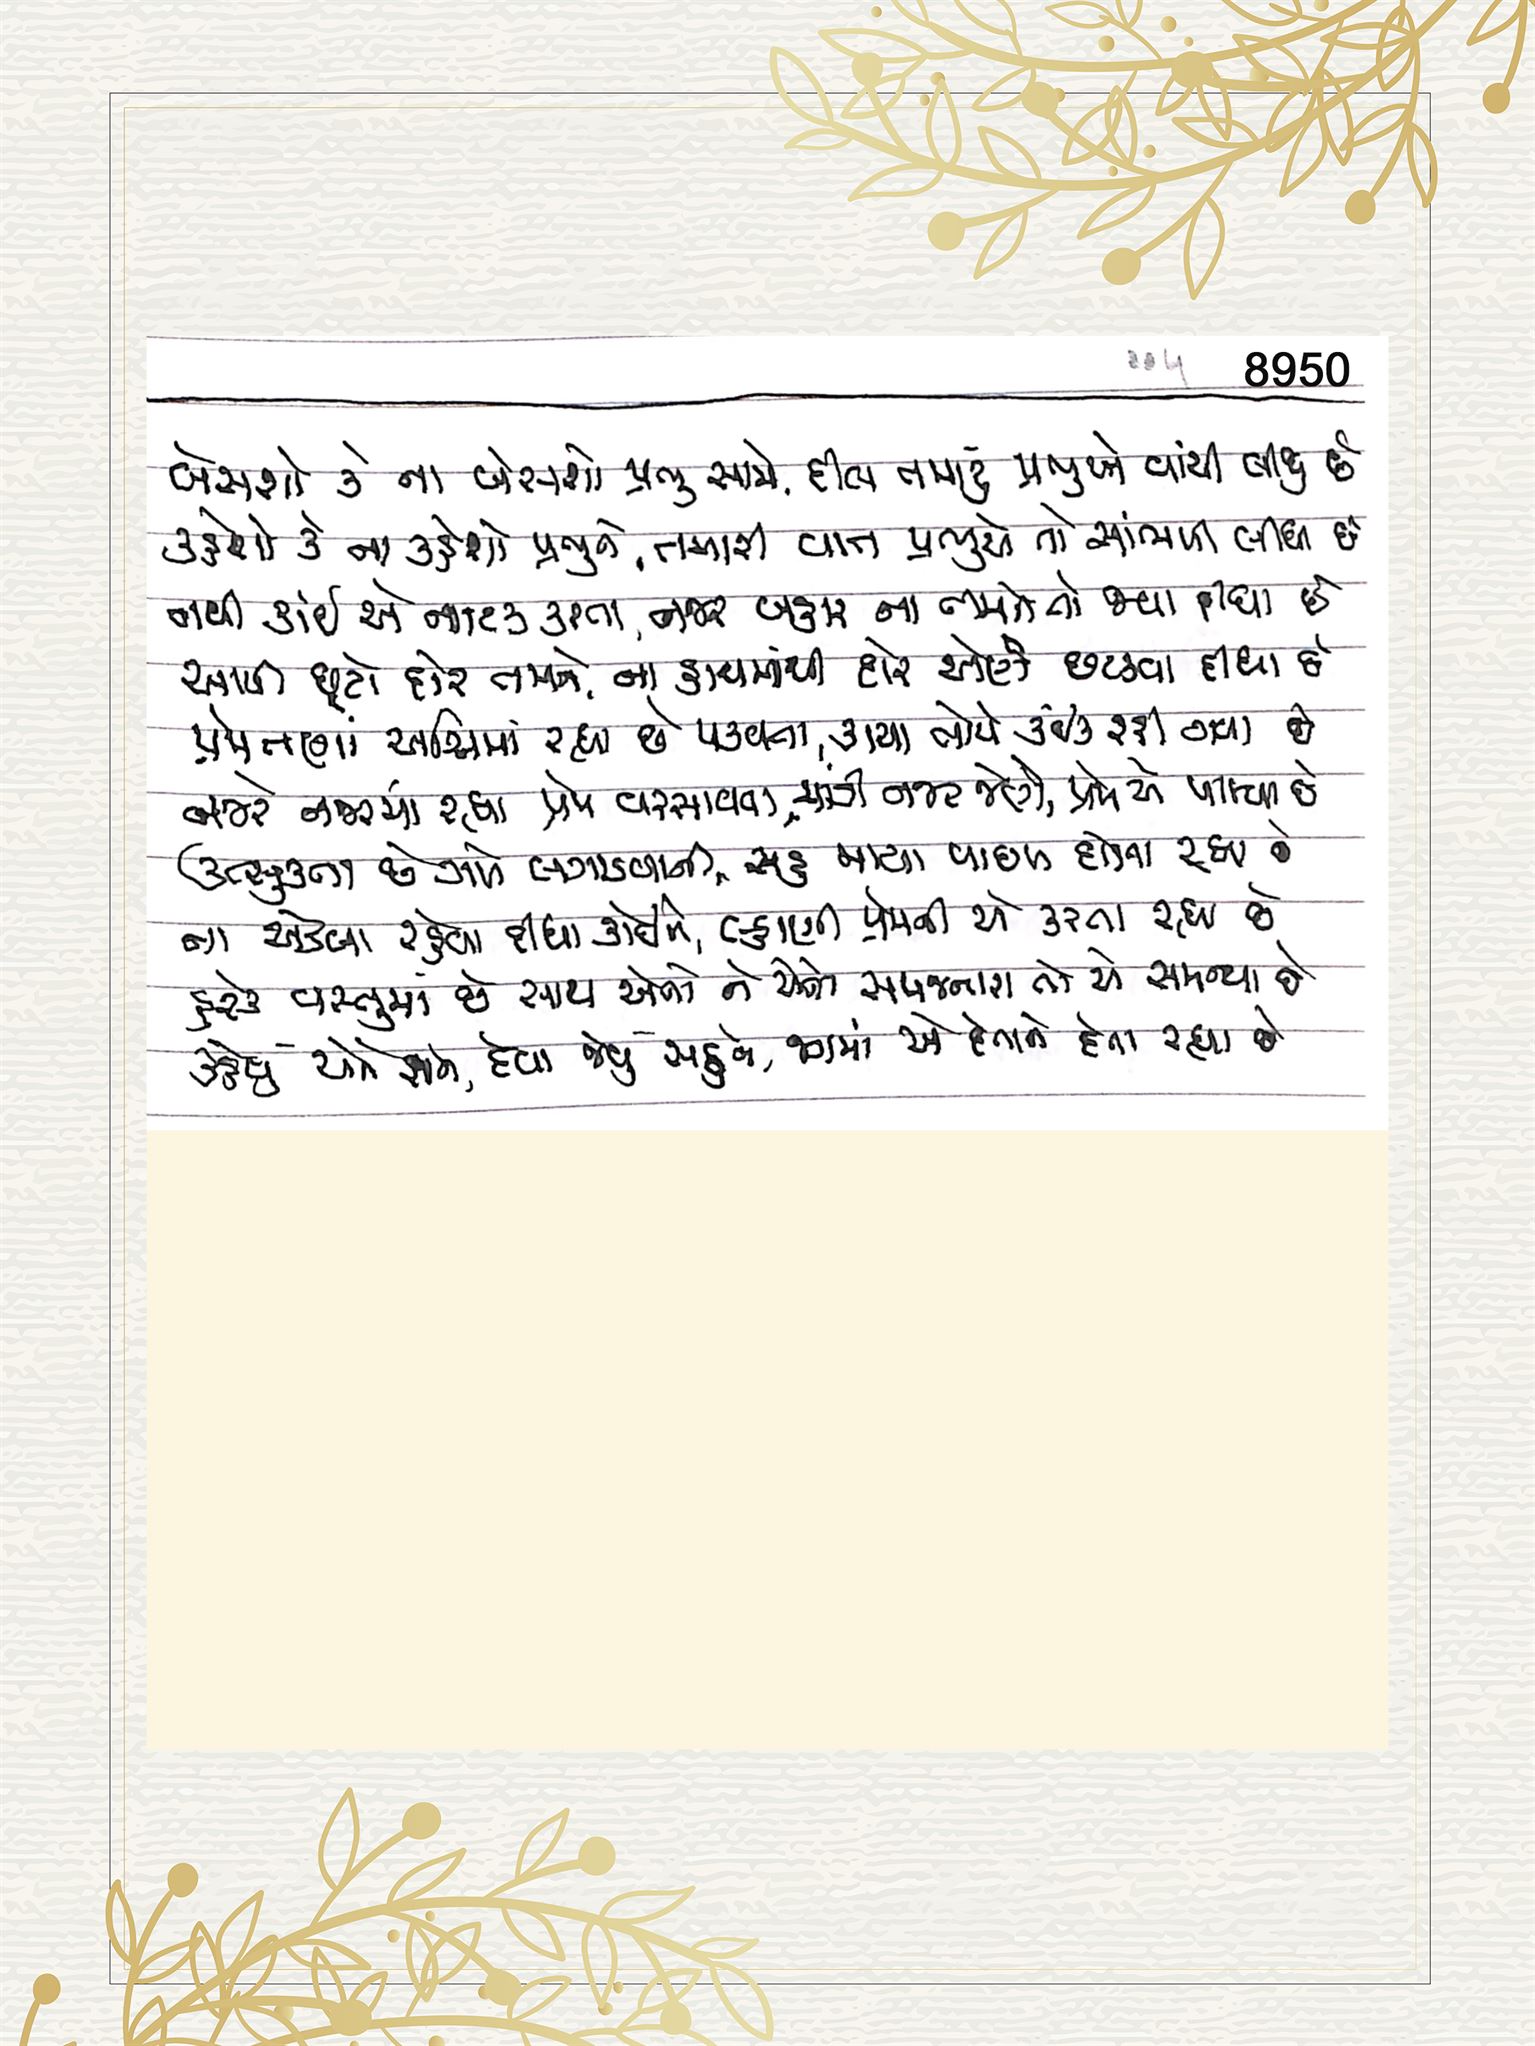 ૨૦૫ 8950
બેસશો કે ના બેસશો પ્રભુ સામે, દીલ તમારું પ્રભુએ વાંચી લીધું છે
કહેશો કે ના કહેશો પ્રભુને, તમારી વાત પ્રભુએ તો સાંભળી લીધી છે
નથી કાંઈ એ નાટક કરતા, નજર બહાર ના તમને તો જવા દીધા છે
આપી છૂટો દોર તમને, ના હાથમાંથી દોર એણે છટકવા દીધા છે
પ્રેમ તણાં અગ્નિમાં રહ્યા છે પકવતા, કાચા લોયે કંઈક રહી ગયા છે
નજરે નજરમાં રહ્યા પ્રેમ વરસાવતા, માંડી નજર જેણે, પ્રેમ એ પામ્યા છે
ઉત્સુકતા છે ગળે લગાડવાની, સહુ માયા પાછળ દોડતા રહ્યા છે
ના એકલા રહેવા દીધા કોઈને, લ્હાણી પ્રેમની એ કરતા રહ્યા છે
હરેક વસ્તુમાં છે સાથ એનો ને એનો સમજનારા તો એ સમજ્યા છે
કહેવું એને શાને, દેવા જેવું સહુને, જગમાં એ દેતાને દેતા રહ્યા છે